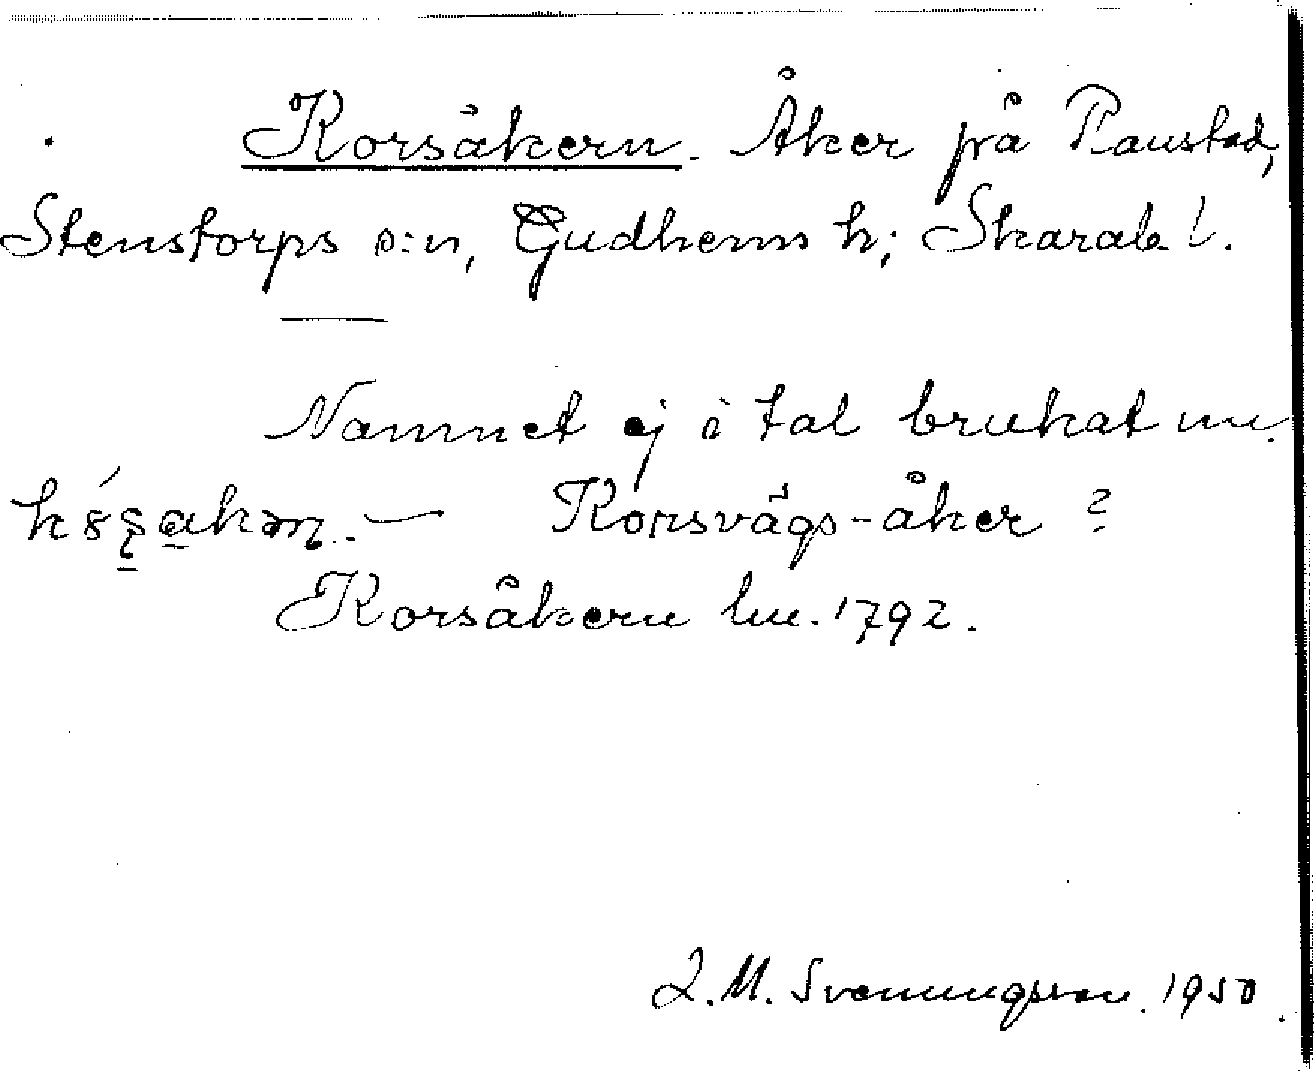 Korsåkern. Åker på Raustad,
Stenstorps s:n, Gudhems h; Skarab. l.
Namnet ej i tal brukat nu.
Korsvägs-åker?
Korsåkern lm. 1792.
L.M. Svenungsson. 1950.